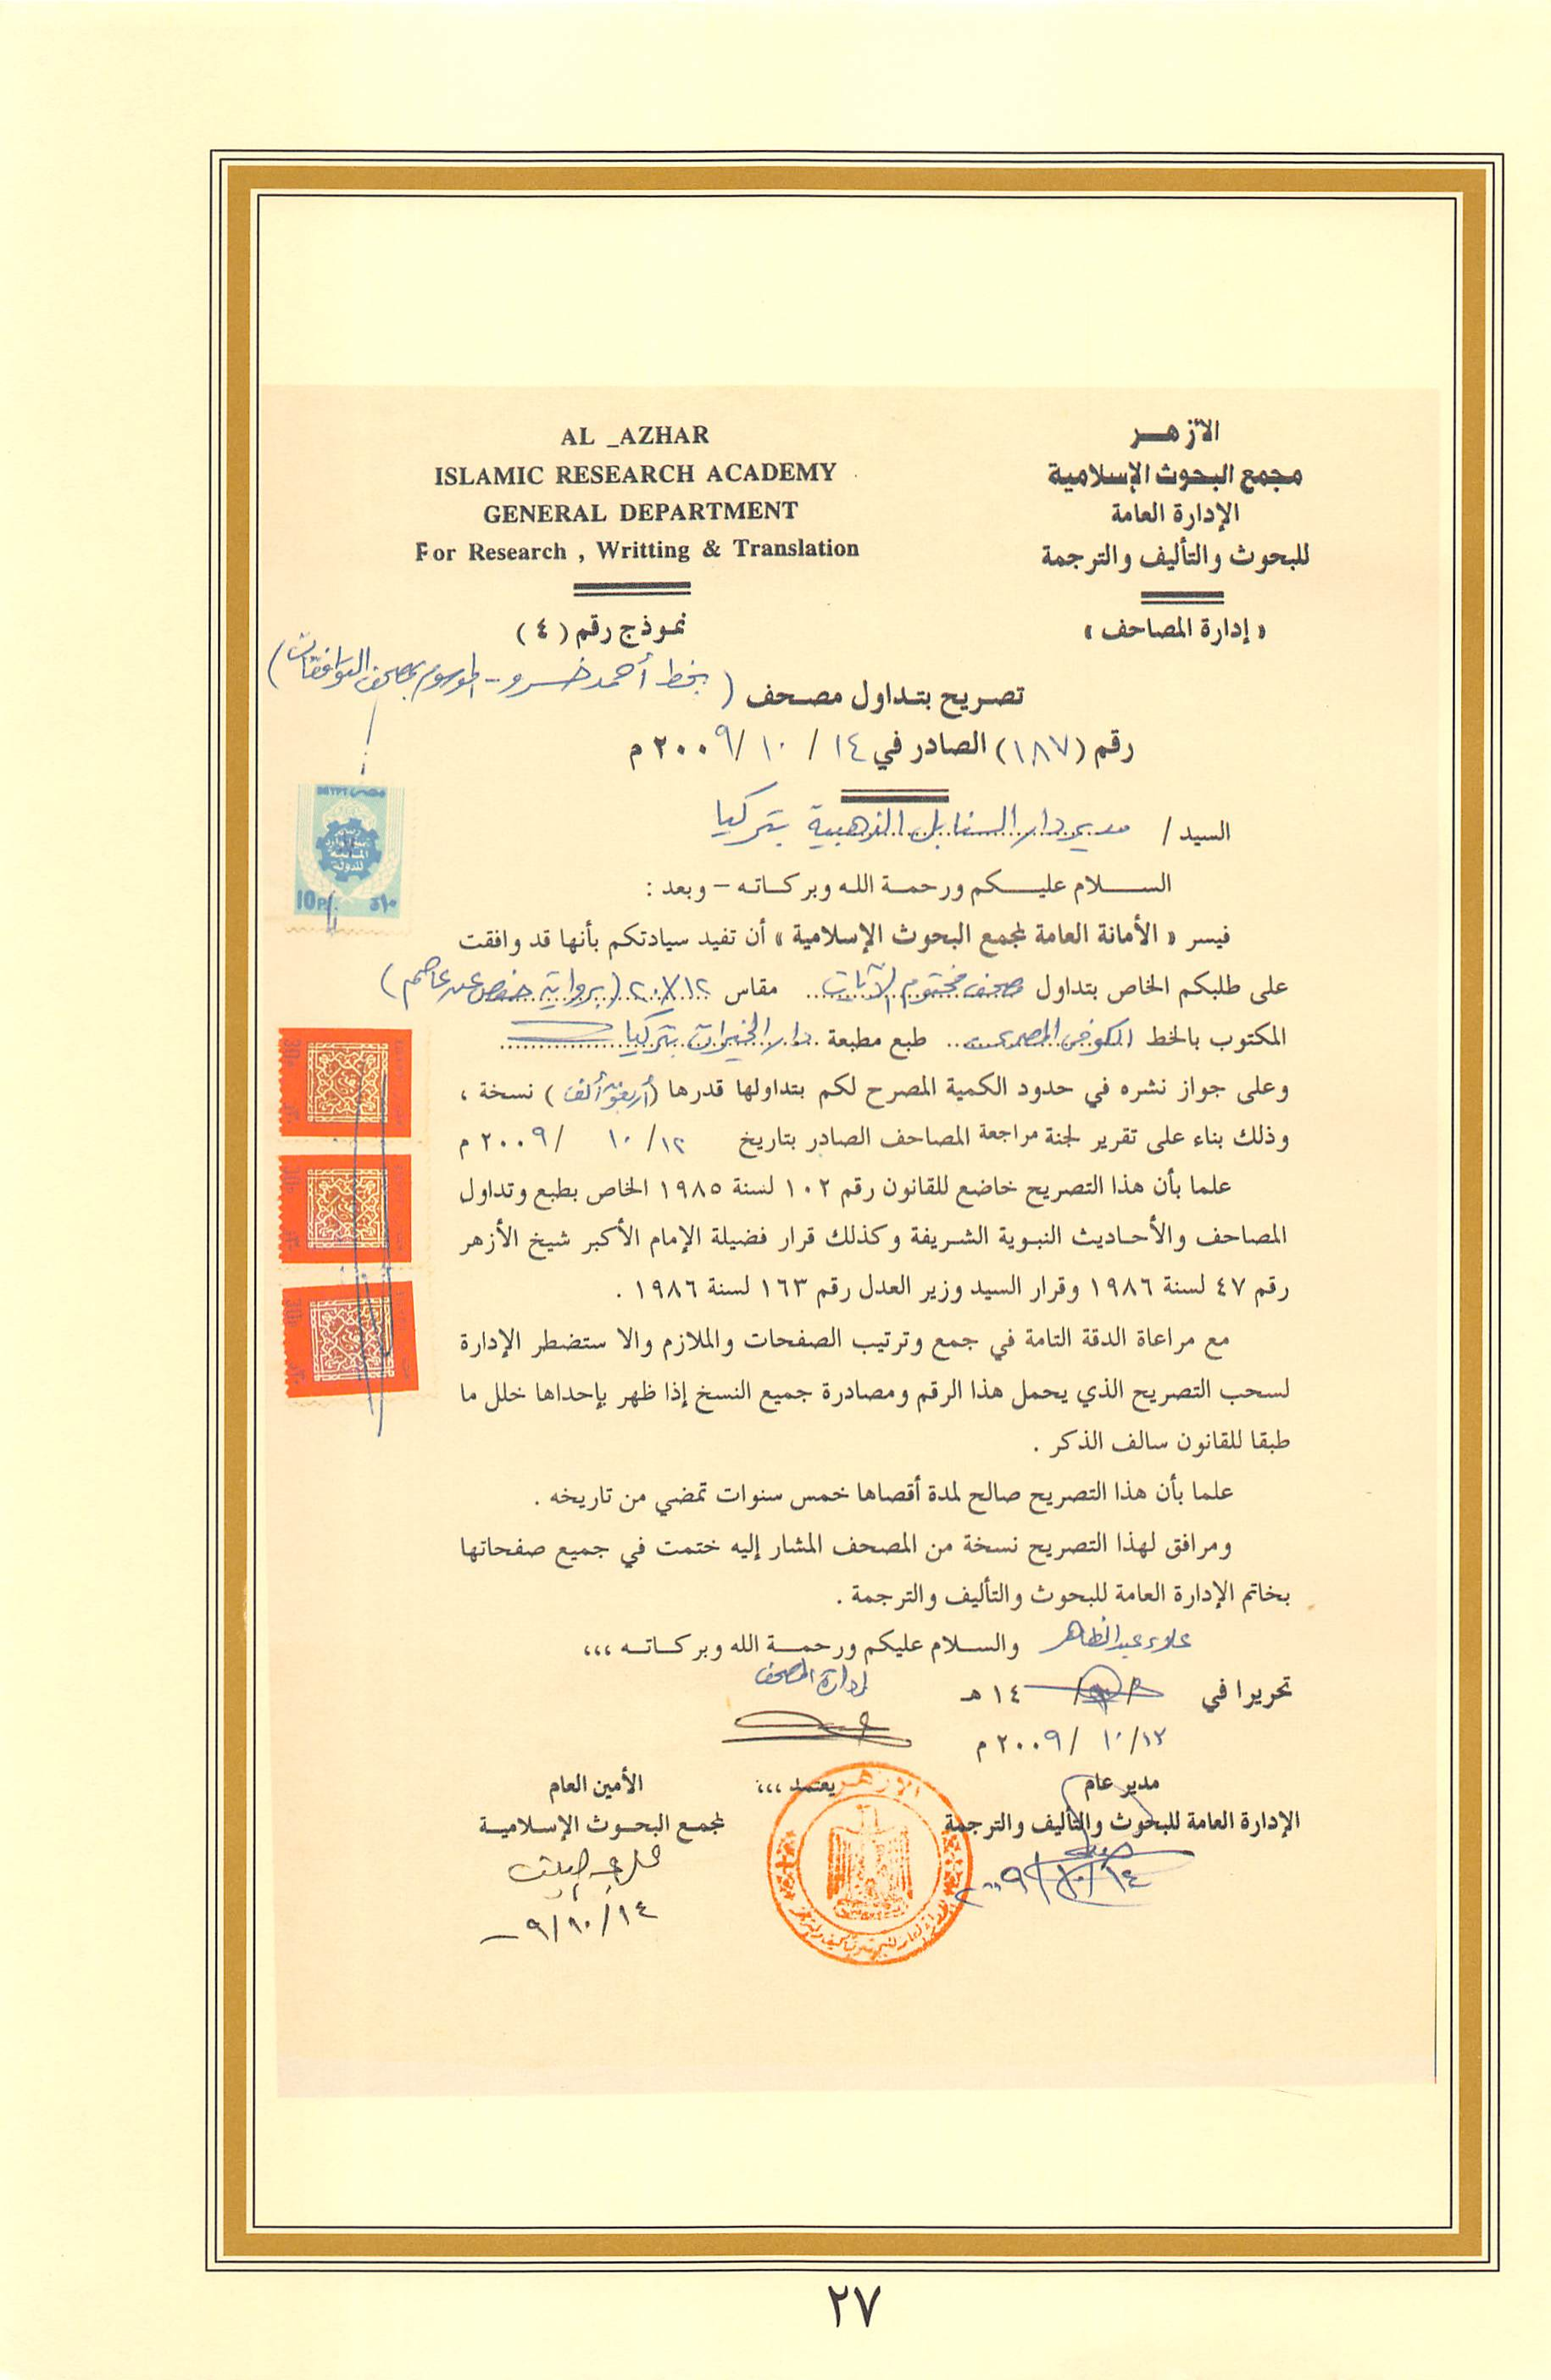 الأزهر
مجمع البحوث الإسلامية
الإدارة العامة
للبحوث والتأليف والترجمة
« إدارة المصاحف »
AL _AZHAR
ISLAMIC RESEARCH ACADEMY
GENERAL DEPARTMENT
For Research , Writting & Translation
نموذج رقم ( ٤ )
تصريح بتداول مصحف ( بخط أحمد خسرو - الموسوم بمصحف التوافقات )
رقم (١٨٧) الصادر في ١٤ / ١٠ / ٢٠٠٩ م
السيد / مدير دار السنابل الذهبية بتركيا
السلام عليكم ورحمة الله وبركاته – وبعد :
فيسر « الأمانة العامة لمجمع البحوث الإسلامية » أن تفيد سيادتكم بأنها قد وافقت
على طلبكم الخاص بتداول مصحف مختوم الآيات مقاس ١٢×٢٠ (برواية حفص عن عاصم)
المكتوب بالخط الكوفى طبع مطبعة دار الخيرات بتركيا
وعلى جواز نشره في حدود الكمية المصرح لكم بتداولها قدرها ( ألف ) نسخة ،
وذلك بناء على تقرير لجنة مراجعة المصاحف الصادر بتاريخ ١٢ / ١٠ / ٢٠٠٩ م
علما بأن هذا التصريح خاضع للقانون رقم ١٠٢ لسنة ١٩٨٥ الخاص بطبع وتداول
المصاحف والأحاديث النبوية الشريفة وكذلك قرار فضيلة الإمام الأكبر شيخ الأزهر
رقم ٤٧ لسنة ١٩٨٦ وقرار السيد وزير العدل رقم ١٦٣ لسنة ١٩٨٦ .
مع مراعاة الدقة التامة في جمع وترتيب الصفحات والملازم والا ستضطر الإدارة
لسحب التصريح الذي يحمل هذا الرقم ومصادرة جميع النسخ إذا ظهر بإحداها خلل ما
طبقا للقانون سالف الذكر .
علما بأن هذا التصريح صالح لمدة أقصاها خمس سنوات تمضي من تاريخه .
ومرافق لهذا التصريح نسخة من المصحف المشار إليه ختمت في جميع صفحاتها
بخاتم الإدارة العامة للبحوث والتأليف والترجمة .
علاء عبد الظاهر والسلام عليكم ورحمة الله وبركاته ،،،
إدارة المصحف
تحريرا في / / ١٤ هـ
١٢ / ١٠ / ٢٠٠٩ م
مدير عام
الإدارة العامة للبحوث والتأليف والترجمة
١٤/١٠/٢٠٠٩
يعتمد ،،،
الأزهر
الأمين العام
لمجمع البحوث الإسلامية
١٤/١٠/٠٩
مصر EGYPT
10P
٢٧